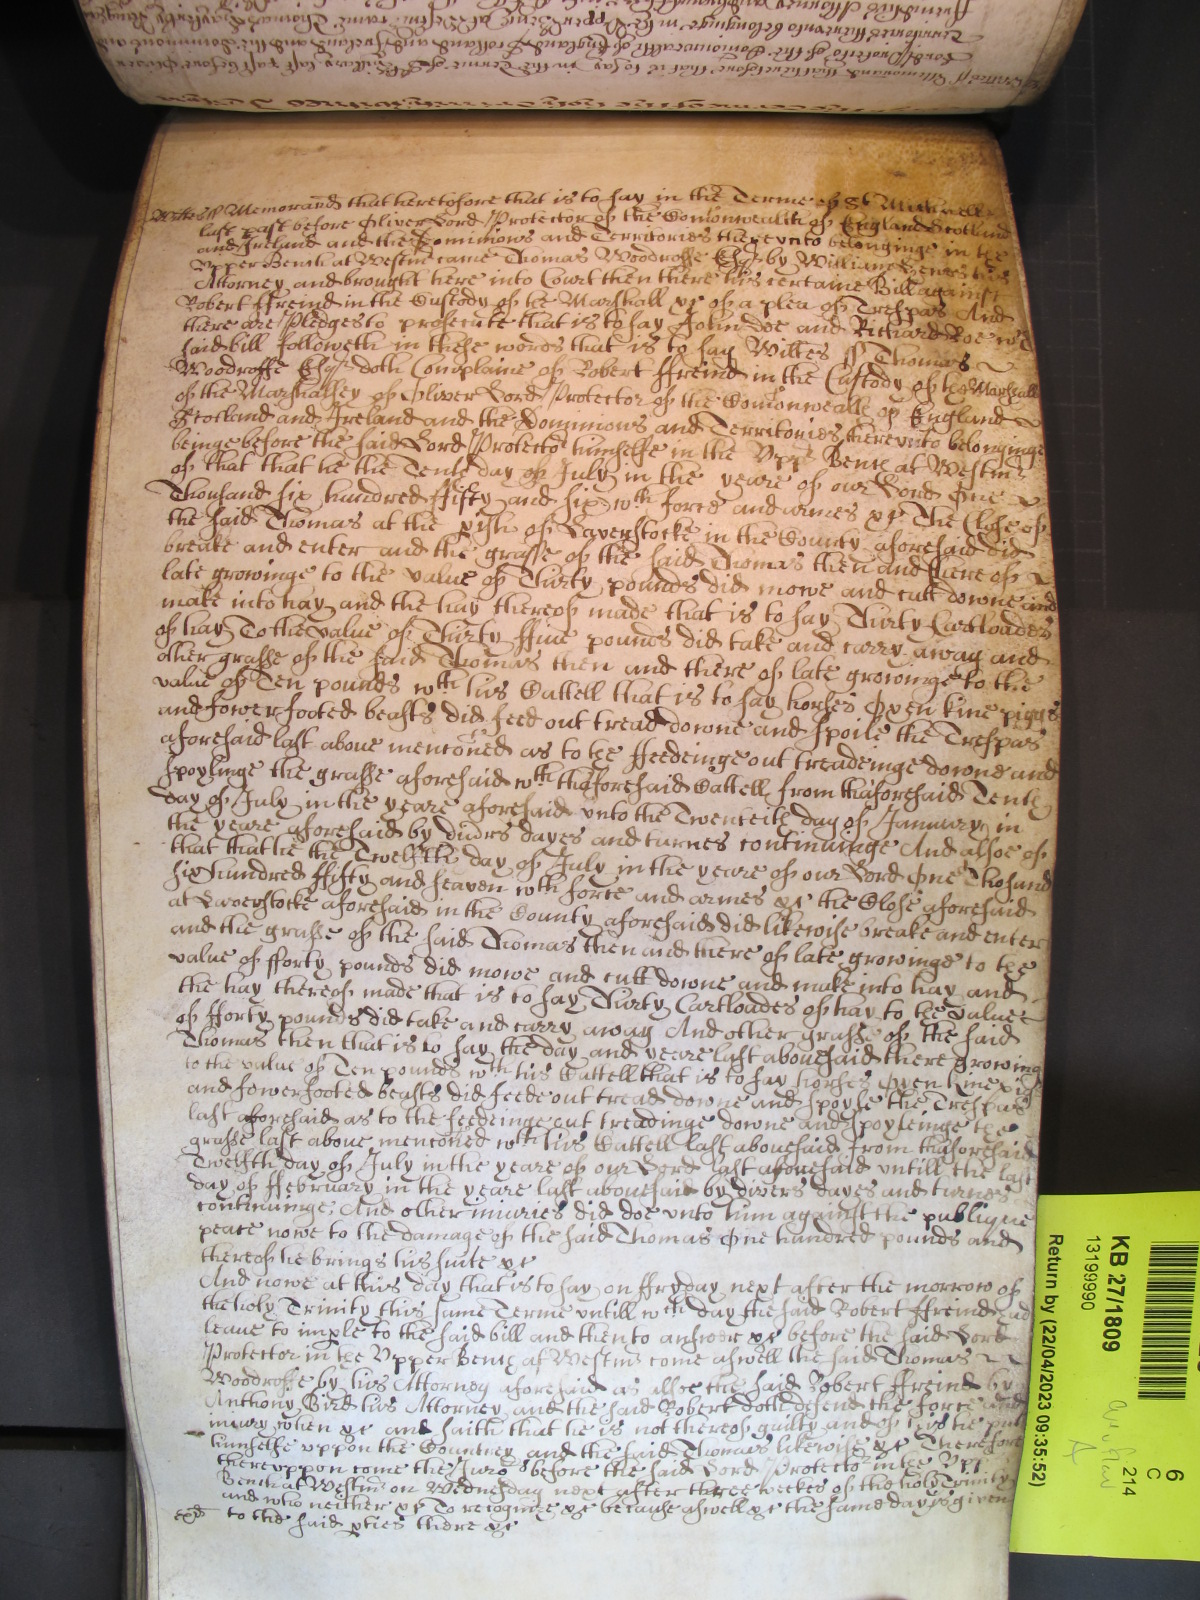 Wiltes ss Memorand that heretofore that is to say in the Terme of St Michaell
last past before Oliver Lord Protector of the Comonwealth of England Scotland
and Ireland and the Dominions and Territories therevnto belonginge in the
Vpper Bench at Westm came Thomas Woodroffe Esqr by William his
Attorney and brought here into Court then there his certaine Bill against
Robert ffreind in the Custody of the Marshall &c of a plea of Trespas And
there are Pledges to prosecute that is to say John Doe and Richard Roe wch
said bill followeth in these words that is to say Wiltes ss Thomas
Woodroffe Esqr doth Complaine of Robert ffreind in the Custody of the Marshall
of the Marshalsey of Oliver Lord Protector of the Comonwealth of England
Scotland and Ireland and the Dominions and Territories therevnto belonginge
beinge before the said Lord Protector himselfe in the Vpp Bench at Westmr
of that that he the Tenth day of July in the yeare of our Lord One
Thousand six hundred ffifty and six wth force and armes &c The Close of
the said Thomas at the pish of Laverstocke in the County aforesaid did
breake and enter and the grasse of the said Thomas then and there of
late growinge to the value of Thirty pounds did mowe and cutt downe and
make into hay and the hay thereof made that is to say Thirty Cartloades
of hay To the value of Thirty ffiue pounds did take and carry away and
other grasse of the said Thomas then and there of late growinge to the
value of Ten pounds wth his Cattell that is to say horses Oxen kine piggs
and fower footed beasts did feed out tread downe and spoile the Trespas
aforesaid last aboue mentioned as to the ffeedeinge out treadeinge downe and
spoylinge the grasse aforesaid wth thaforesaid Cattell from thaforesaid Tenth
day of July in the yeare aforesaid vnto the Twenteith day of January in
the yeare aforesaid by diuers dayes and turnes continuinge And alsoe of
that that he the Twelfth day of July in the yeare of our Lord One Thosand
six hundred ffifty and seaven wth force and armes &c the Close aforesaid
at Laverstocke aforesaid in the County aforesaid did likewise breake and enter
and the grasse of the said Thomas then and there of late growinge to the
value of fforty pounds did mowe and cutt downe and make into hay and
the hay thereof made that is to say Thirty Cartloades of hay to the value
of fforty pounds did take and carry away And other grasse of the said
Thomas then that is to say the day and yeare last abouesaid there growing
to the value of Ten pounds wth his Cattell that is to say horses Oxen kine
and fower footed beasts did feede out tread downe and spoyle the Trespas
last aforesaid as to the feedeinge out treadinge downe and spoyleinge the
grasse last aboue mentioned wth his Cattell last abouesaid from thaforesaid
Twelfth day of July in the yeare of our Lord last abouesaid vntill the last
day of ffebruary in the yeare last abouesaid by divers dayes and turnes
continuinge. And other iniuries did doe vnto him against the publique
peace nowe to the damage of the said Thomas One hundred pounds and
thereof he brings his suite &c
And nowe at this day that is to say on ffryday next after the morrow of
the holy Trinity this same Terme vntill wch day the said Robert ffreind had
leaue to imple to the said bill and then to answer &c before the said Lord
Protector in the Vpper Bench at Westmr come aswell the said Thomas
Woodroffe by his Attorney aforesaid as alsoe the said Robert ffreind by
Anthony Bird his Attorney and the said Robert doth defend the force and
iniury when &c and saith that he is not thereof guilty and of this he putt
himselfe vppon the Countrey and the said Thomas likewise &c Therefore
therevppon come the Juro's before the said Lord Protector in the Vpp
Bench at Westmr on Wednesday next after three weekes of the holy Trinity
and who neither &c To recognize &c because aswell &c the same day is given
to the said pties there &c
KB 27/1809
13199990
Return by (22/04/2023 09:35:52)
6
C
214